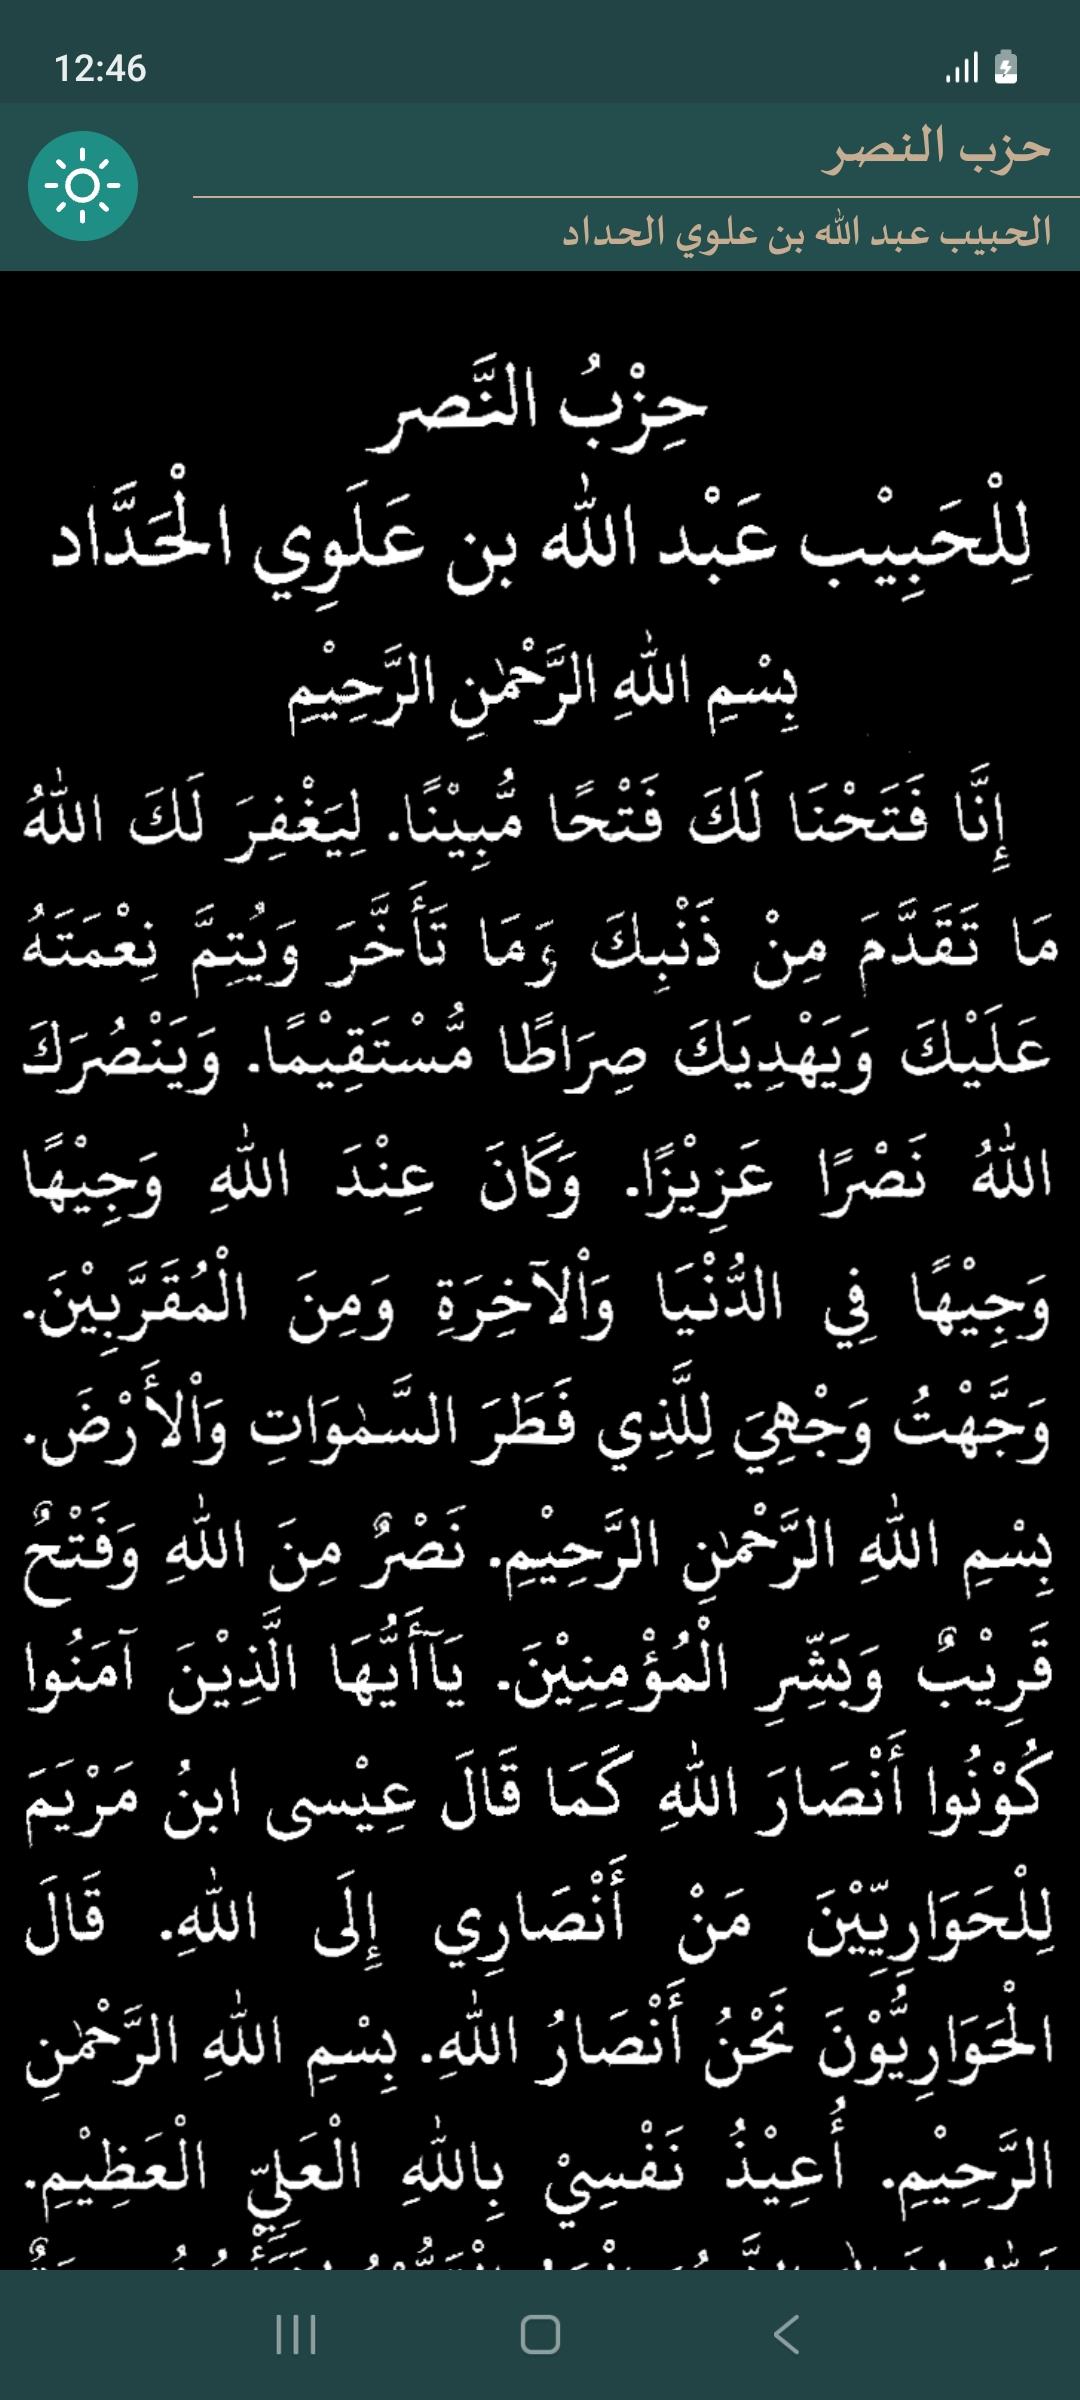 12:46
حزب النصر
الحبيب عبد الله بن علوي الحداد
حِزْبُ النَّصر
لِلْحَبِيْب عَبْد الله بن عَلَوِي الْحَدَّاد
بِسْمِ اللهِ الرَّحْمٰنِ الرَّحِيْمِ
إِنَّا فَتَحْنَا لَكَ فَتْحًا مُّبِيْنًا. لِيَغْفِرَ لَكَ اللهُ
مَا تَقَدَّمَ مِنْ ذَنْبِكَ وَمَا تَأَخَّرَ وَيُتِمَّ نِعْمَتَهُ
عَلَيْكَ وَيَهْدِيَكَ صِرَاطًا مُّسْتَقِيْمًا. وَيَنْصُرَكَ
اللهُ نَصْرًا عَزِيْزًا. وَكَانَ عِنْدَ اللهِ وَجِيْهًا
وَجِيْهًا فِي الدُّنْيَا وَاْلآخِرَةِ وَمِنَ الْمُقَرَّبِيْنَ.
وَجَّهْتُ وَجْهِيَ لِلَّذِي فَطَرَ السَّمٰوَاتِ وَاْلأَرْضَ.
بِسْمِ اللهِ الرَّحْمٰنِ الرَّحِيْمِ. نَصْرٌ مِنَ اللهِ وَفَتْحٌ
قَرِيْبٌ وَبَشِّرِ الْمُؤْمِنِيْنَ. يَآأَيُّهَا الَّذِيْنَ آمَنُوا
كُوْنُوا أَنْصَارَ اللهِ كَمَا قَالَ عِيْسى ابنُ مَرْيَمَ
لِلْحَوَارِيِّيْنَ مَنْ أَنْصَارِي إِلَى اللهِ. قَالَ
الْحَوَارِيُّوْنَ نَحْنُ أَنْصَارُ اللهِ. بِسْمِ اللهِ الرَّحْمٰنِ
الرَّحِيْمِ. أُعِيْذُ نَفْسِيْ بِاللهِ الْعَلِيِّ الْعَظِيْمِ.